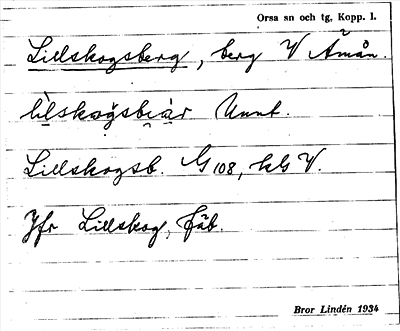 Orsa sn och tg, Kopp. l.
Lillskogsberg, berg V Ämån.
Unnt.
Lillskogsb. G 108, kls V.
Jfr Lillskog, fäb.
Bror Lindén 1934